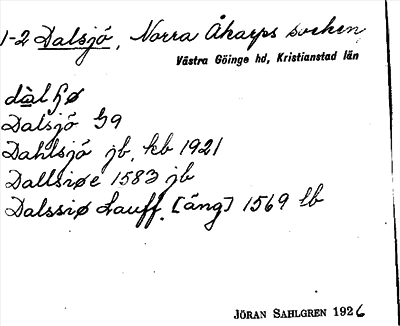 1-2 Dalsjö, Norra Åkarps socken
Västra Göinge hd, Kristianstad län
Dalsjö G9
Dahlsjö jb, kb 1921
Dallsiøe 1583 jb
Dalssiø Lauff [äng] 1569 lb
JÖRAN SAHLGREN 1926